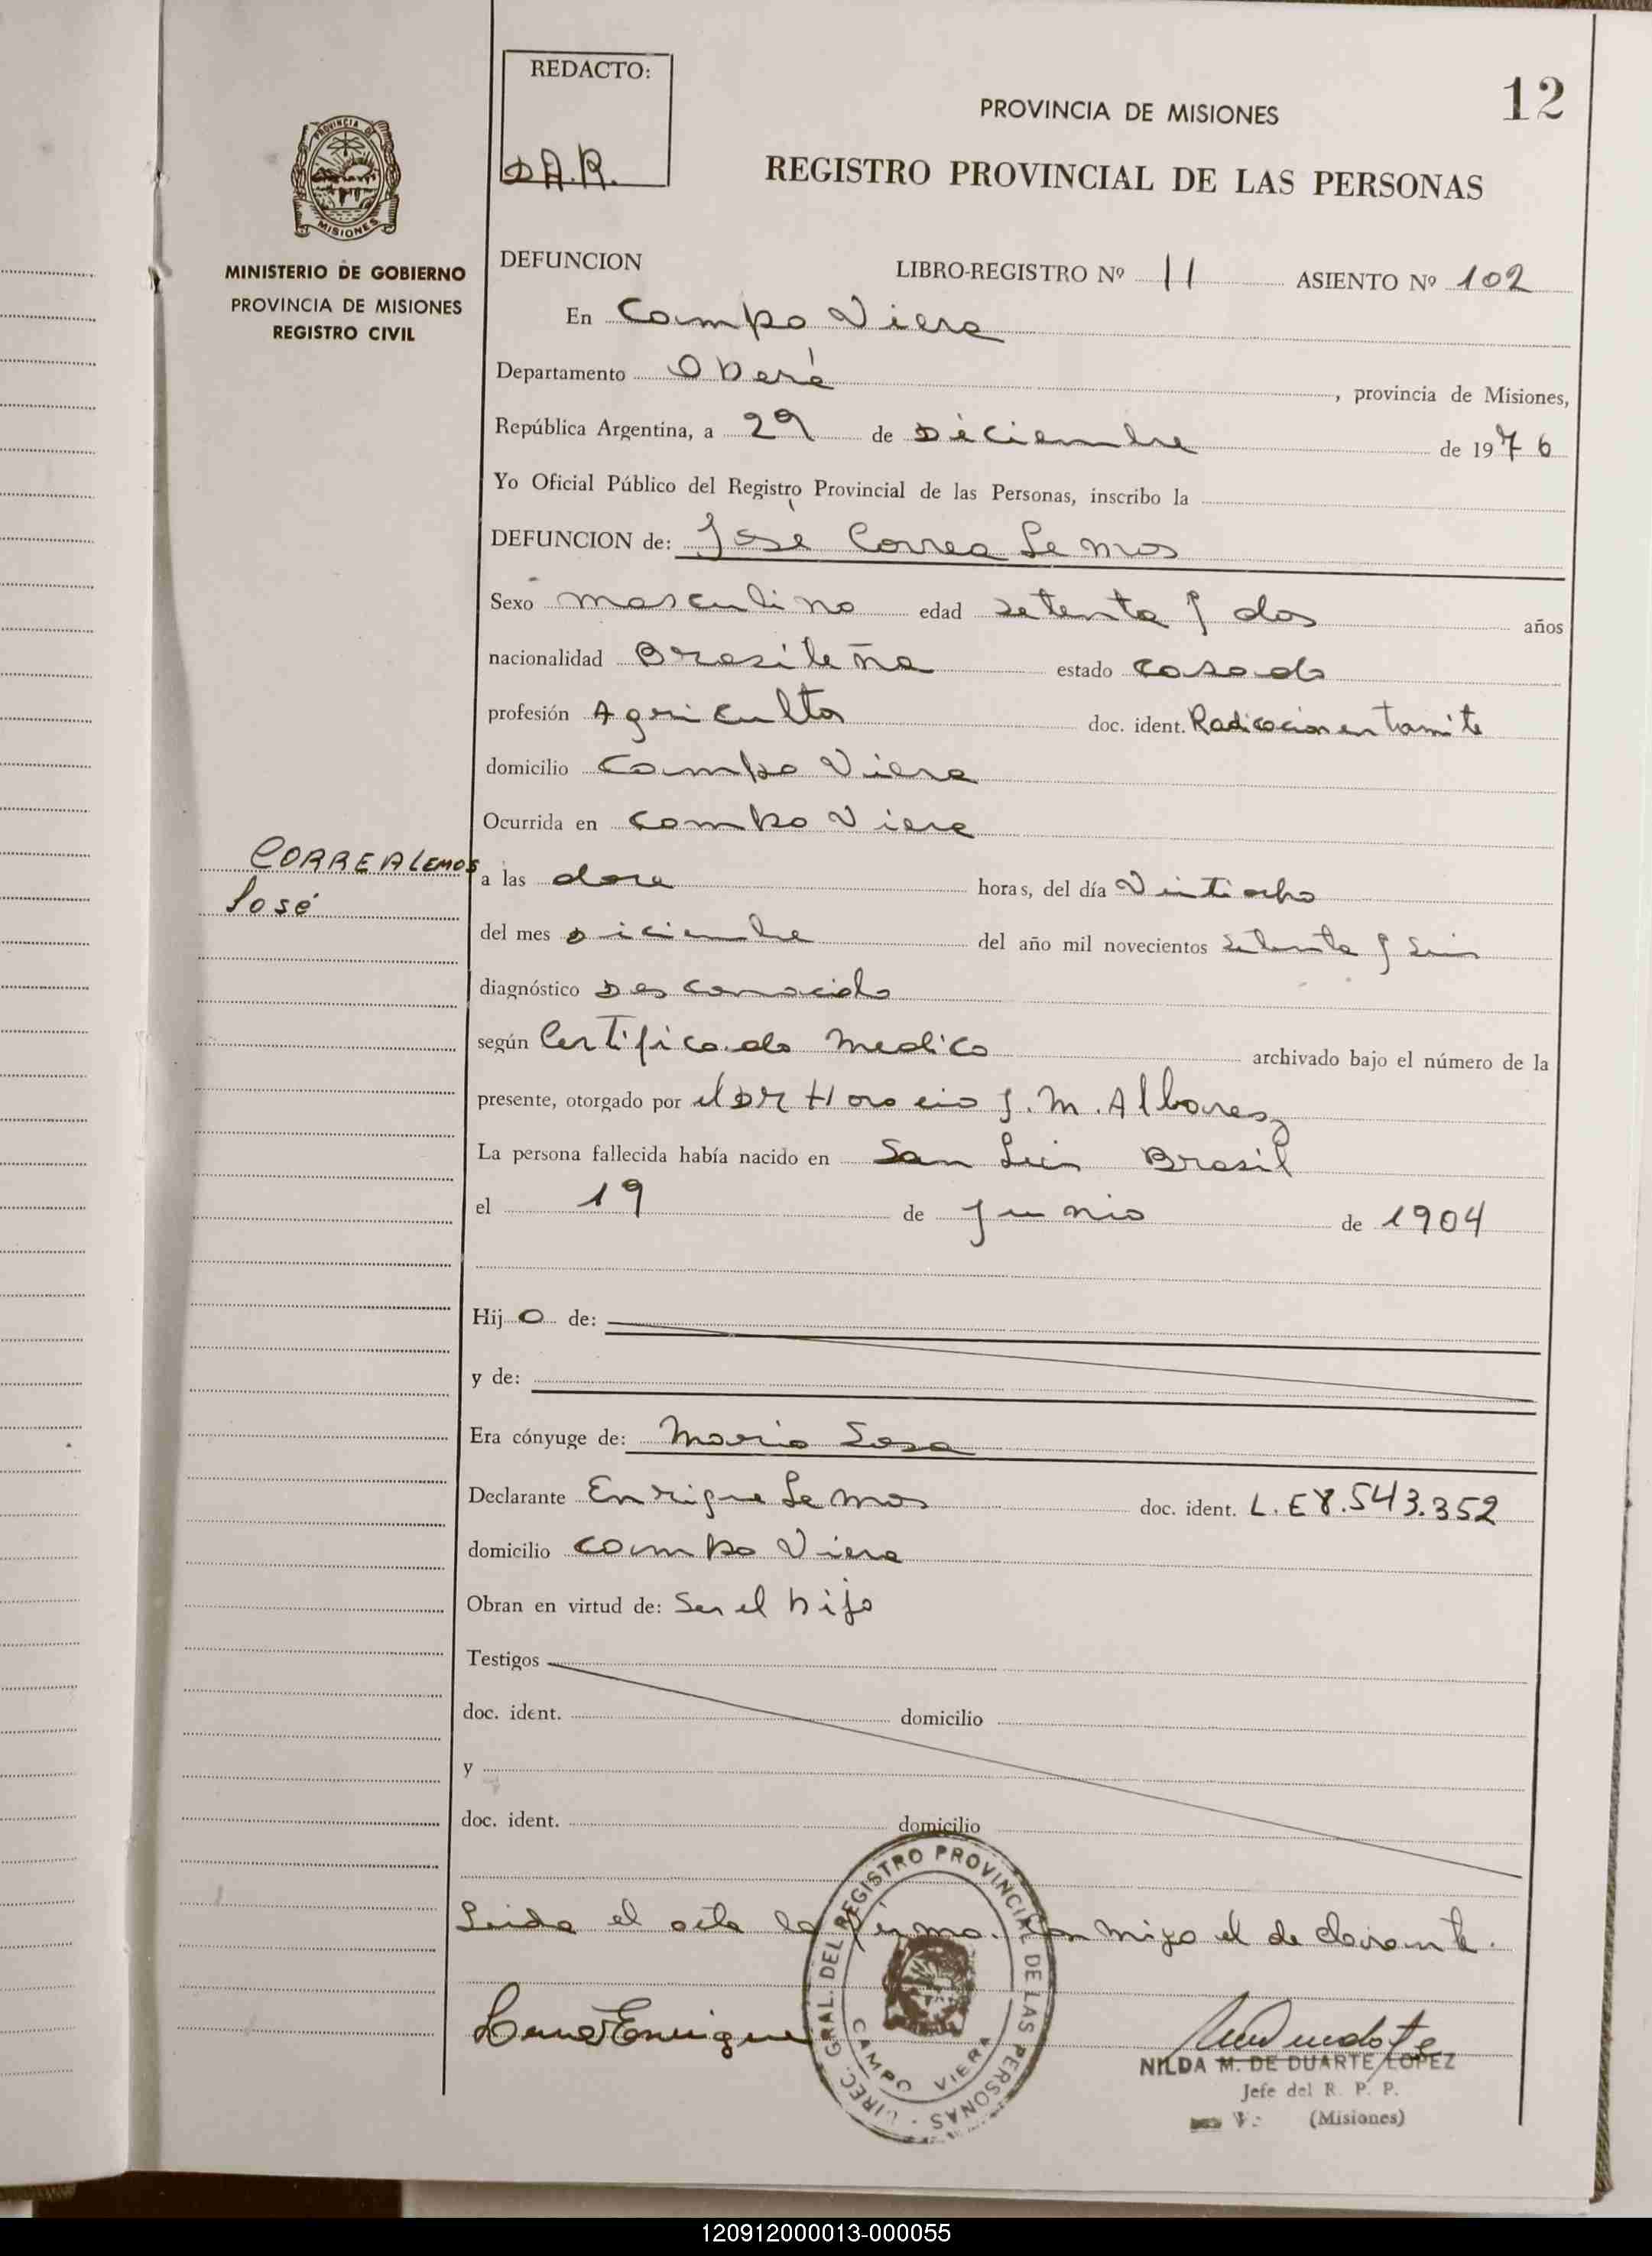 REDACTO:
D.A.R.
12
PROVINCIA DE MISIONES
REGISTRO PROVINCIAL DE LAS PERSONAS
PROVINCIA DE
MISIONES
MINISTERIO DE GOBIERNO
PROVINCIA DE MISIONES
REGISTRO CIVIL
DEFUNCION LIBRO-REGISTRO Nº 11 ASIENTO Nº 102
En Campo Viera
Departamento Oberá, provincia de Misiones,
República Argentina, a 29 de Diciembre de 1976
Yo Oficial Público del Registro Provincial de las Personas, inscribo la
DEFUNCION de: José Correa Lemos
Sexo masculino edad setenta y dos años
nacionalidad Brasileña estado casado
profesión Agricultor doc. ident. Radicacion en tramite
domicilio Campo Viera
Ocurrida en Campo Viera
CORREA LEMOS
José
a las doce horas, del día Vintiocho
del mes Diciembre del año mil novecientos setenta y seis
diagnóstico Desconocido
según Certificado Medico archivado bajo el número de la
presente, otorgado por el DR Horacio J. M. Albarez
La persona fallecida había nacido en San Luis Brasil
el 19 de Junio de 1904
Hijo de:
y de:
Era cónyuge de: Maria Sosa
Declarante Enrique Lemos doc. ident. L.E 8.543.352
domicilio Campo Viera
Obran en virtud de: Ser el hijo
Testigos
doc. ident. domicilio
y
doc. ident. domicilio
Leida el acta la firma con migo el declarante.
DIREC. GRAL. DEL REGISTRO PROVINCIAL DE LAS PERSONAS
CAMPO VIERA
Lemos Enrique
NILDA M. DE DUARTE LOPEZ
Jefe del R. P. P.
(Misiones)
120912000013-000055